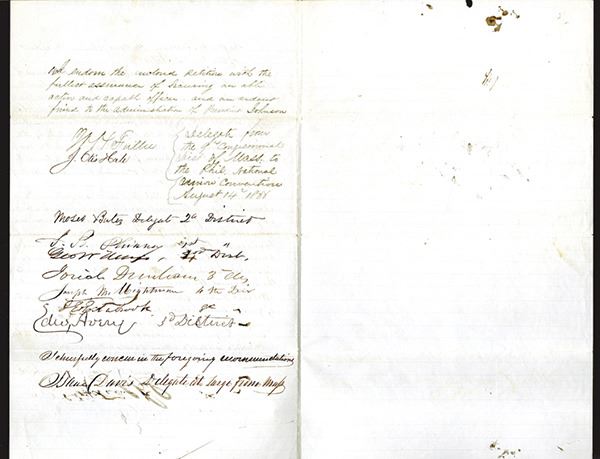 We endorse the enclosed petition with the
fullest assurance of securing an able
active and capable officer and an ardent
friend to the administration of Johnson
Fuller
J. Otis Hale
Delegate from
the 9th Congressional
Dist of Mass. to
the Phil. National
Union Convention
August 14th 1866
Moses Bates Delegate 2d District
S. B. Phinney 1st "
Geo W 1st Dist,
Josiah Dunham 3 do,
Joseph M. Wightman 4th Dis
Estabrook 9th "
Edw. Avery 3d District
I cheerfully concur in the foregoing recommendations
Isaac Davis Delegate at large from Mass